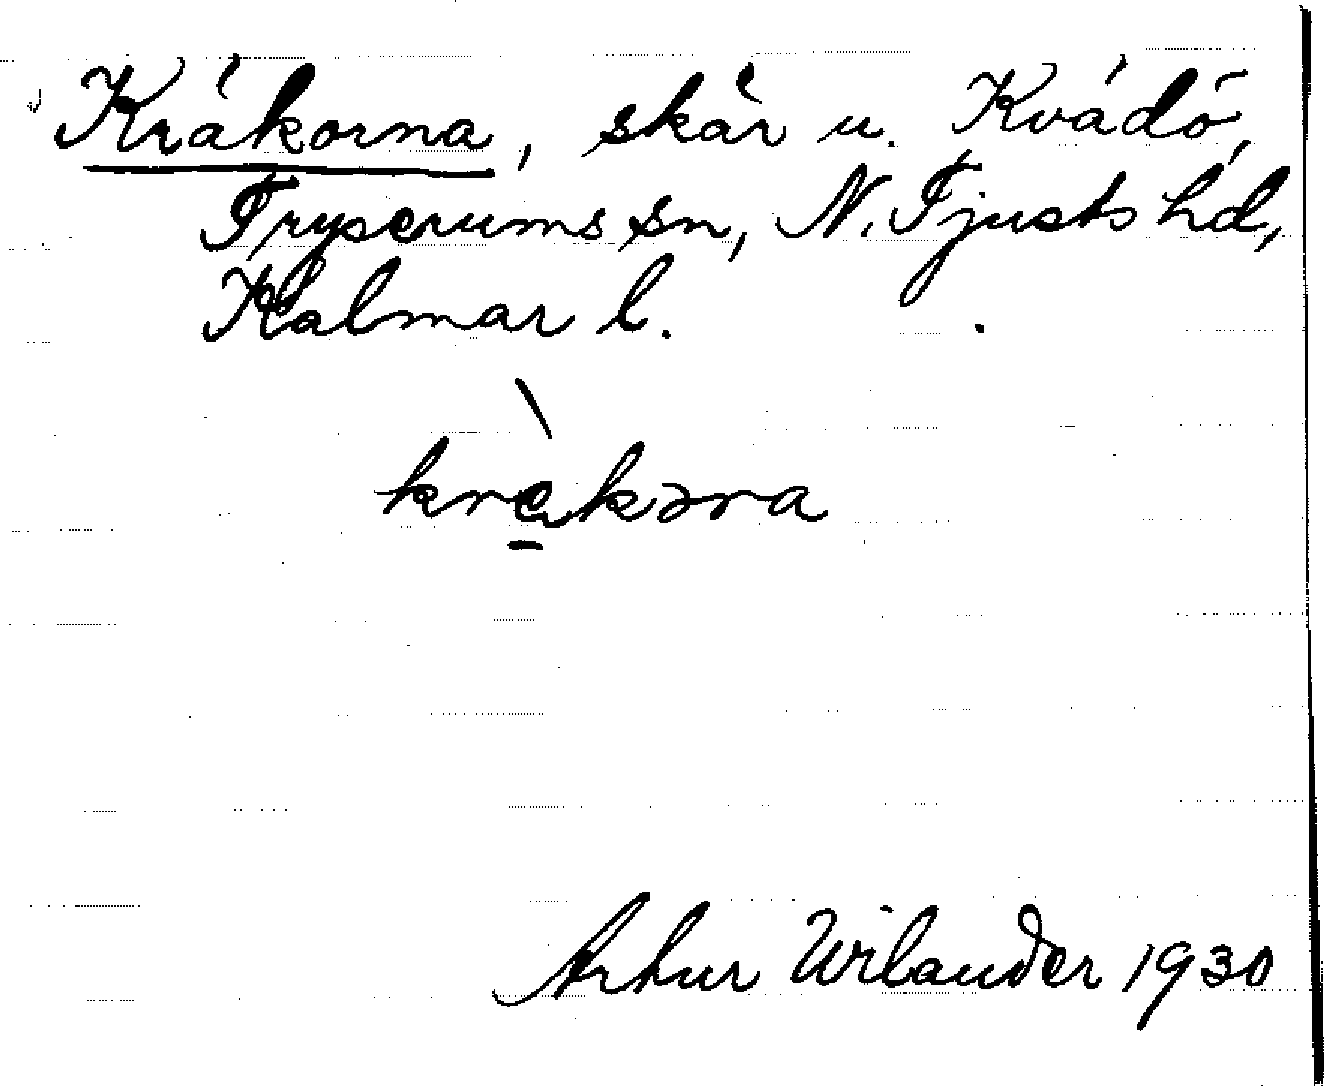 Kråkorna, skär u. Kvädö,
Tryserums sn, N. Tjusts hd,
Kalmar l.
Arhur Wilander 1930